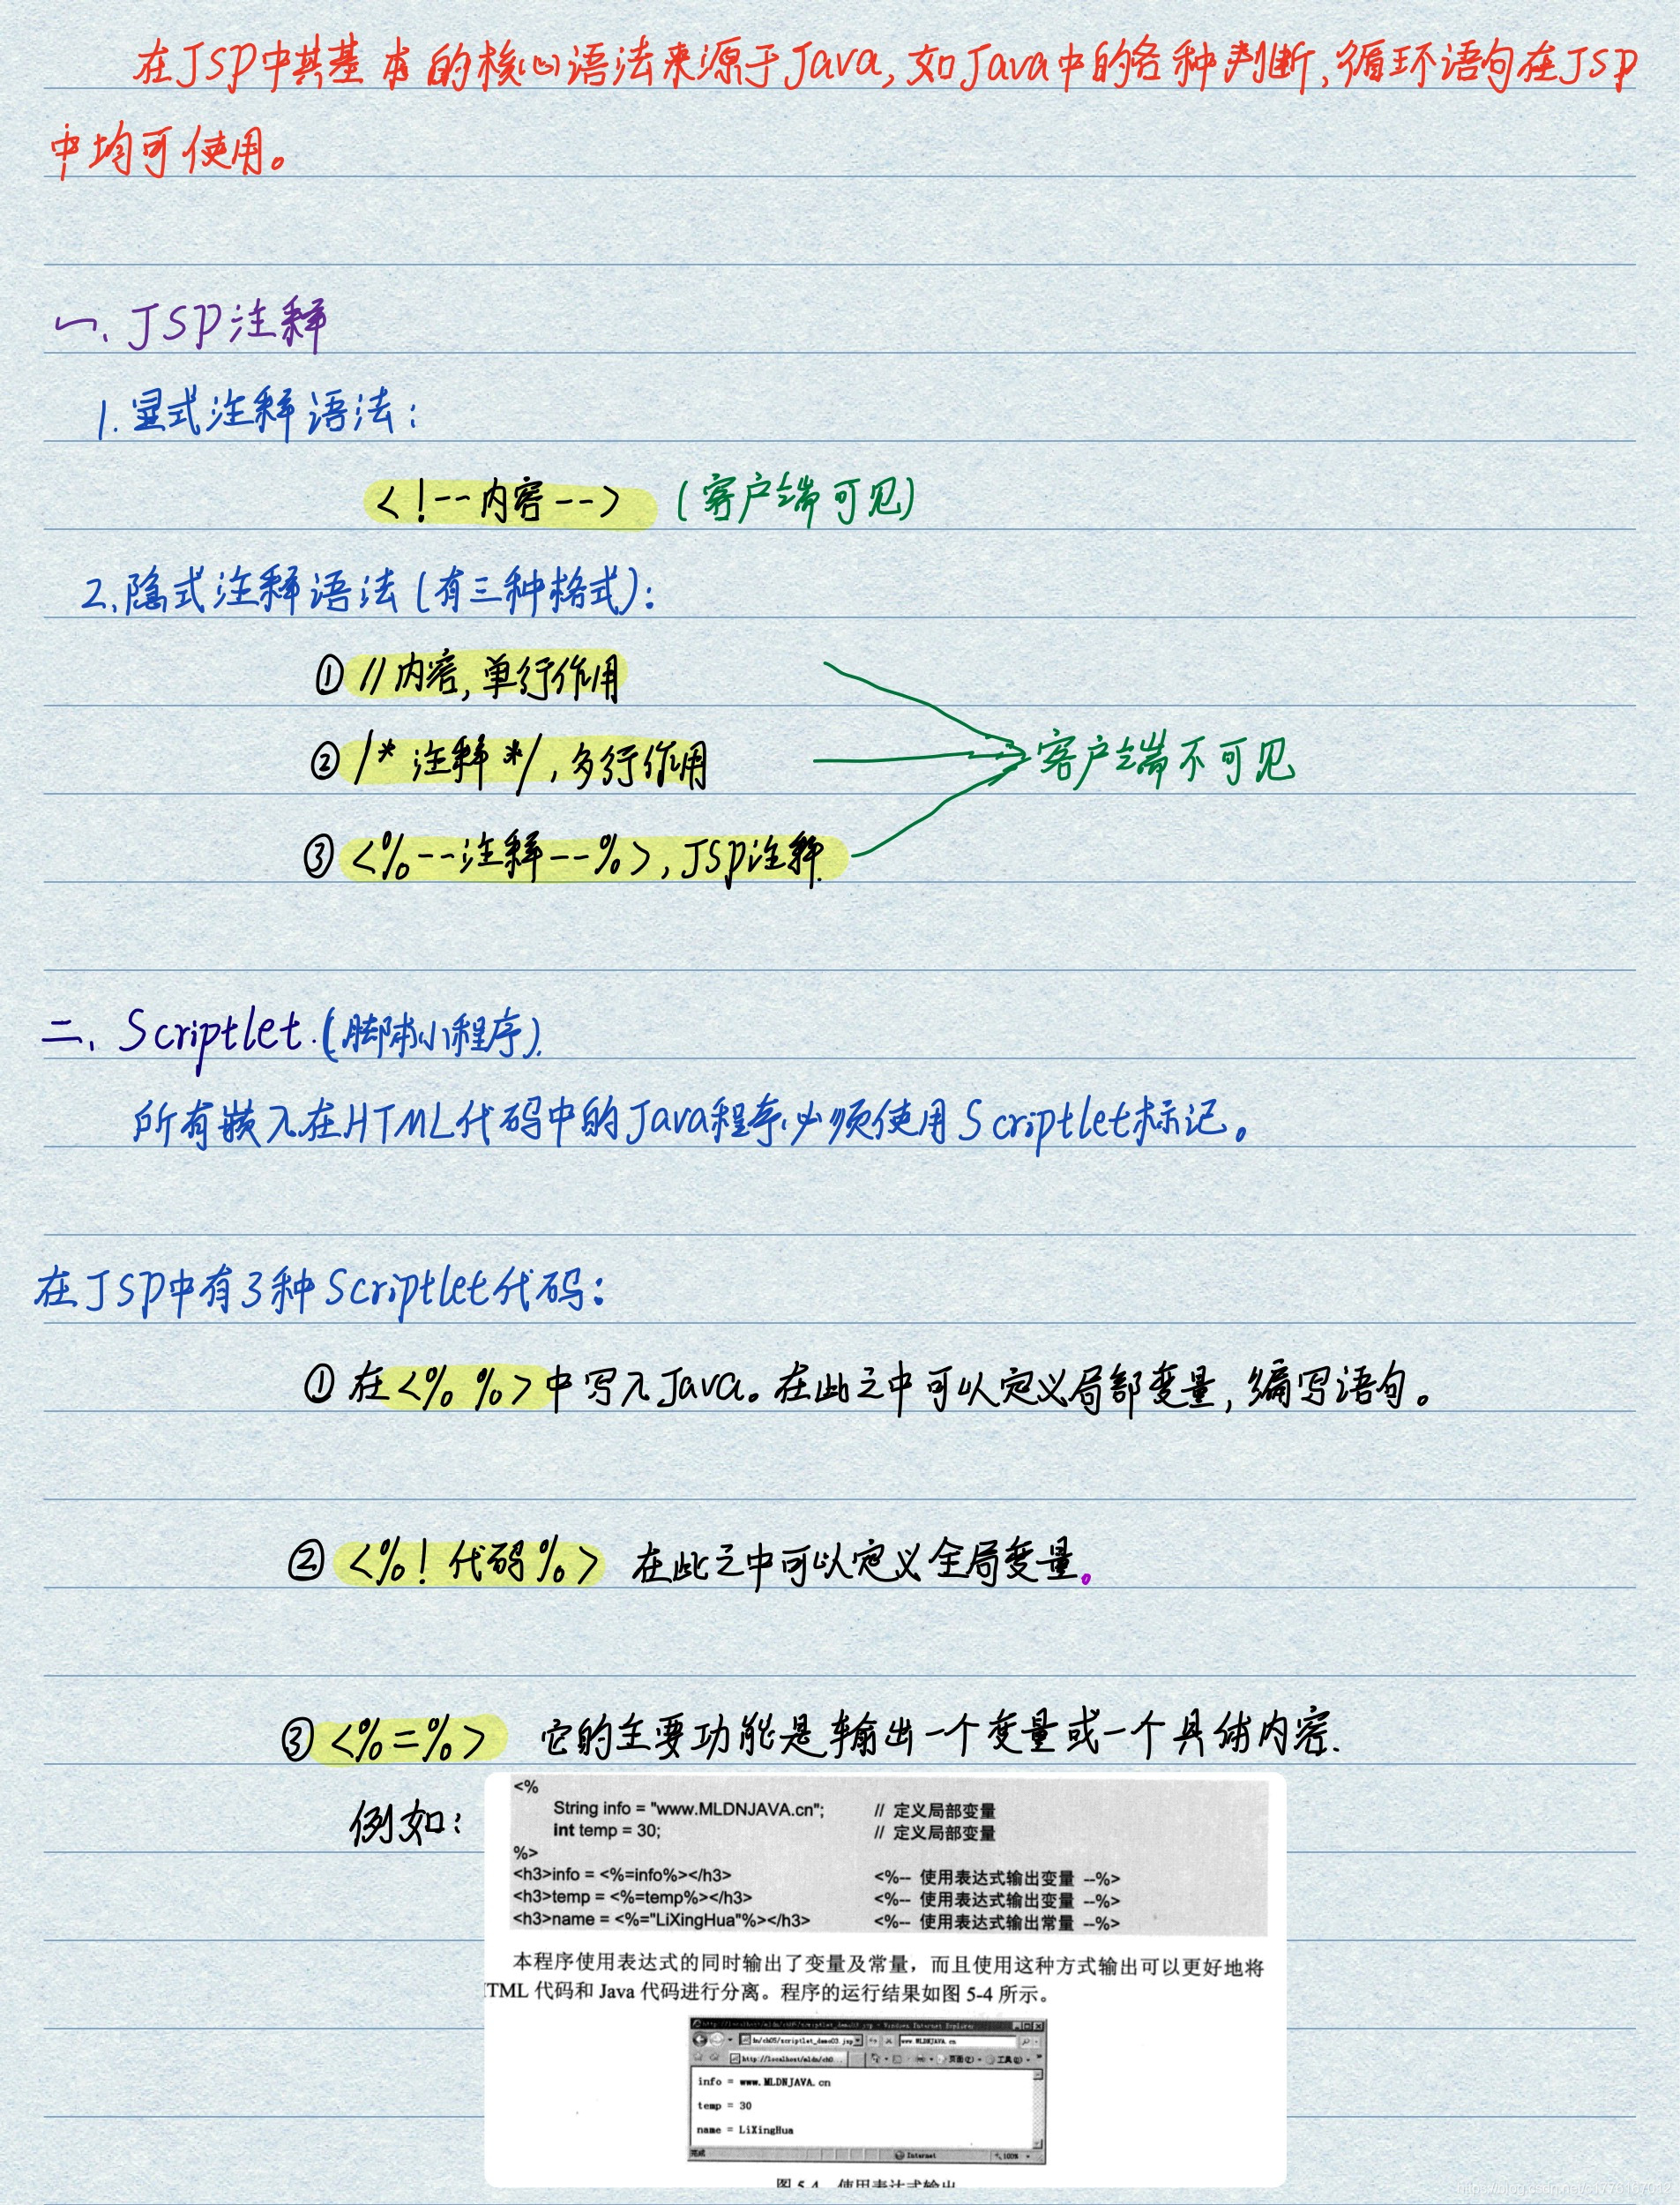 在JSP中其基本的核心语法来源于Java,如Java中的各种判断,循环语句在JSP
中均可使用。
一、JSP注释
1.显式注释语法:
<!--内容--> (客户端可见)
2.隐式注释语法(有三种格式):
① //内容,单行作用
② /* 注释 */,多行作用
客户端不可见
③ <%--注释--%>,JSP注释.
二、Scriptlet.(脚本小程序).
所有嵌入在HTML代码中的Java程序必须使用Scriptlet标记。
在JSP中有3种Scriptlet代码:
① 在<% %>中写入Java。在此之中可以定义局部变量,编写语句。
② <%! 代码%> 在此之中可以定义全局变量。
③ <%=%> 它的主要功能是输出一个变量或一个具体内容.
例如:
<%
String info = "www.MLDNJAVA.cn"; // 定义局部变量
int temp = 30; // 定义局部变量
%>
<h3>info = <%=info%></h3> <%-- 使用表达式输出变量 --%>
<h3>temp = <%=temp%></h3> <%-- 使用表达式输出变量 --%>
<h3>name = <%="LiXingHua"%></h3> <%-- 使用表达式输出常量 --%>
本程序使用表达式的同时输出了变量及常量，而且使用这种方式输出可以更好地将
TML 代码和 Java 代码进行分离。程序的运行结果如图 5-4 所示。
http://localhost/mldn/ch05/scriptlet_demo03.jsp - Windows Internet Explorer
dn/ch05/scriptlet_demo03.jsp www.MLDNJAVA.cn
http://localhost/mldn/ch0... 页面(P) 工具(O)
info = www.MLDNJAVA.cn
temp = 30
name = LiXingHua
完成 Internet 100%
图 5-4 使用表达式输出